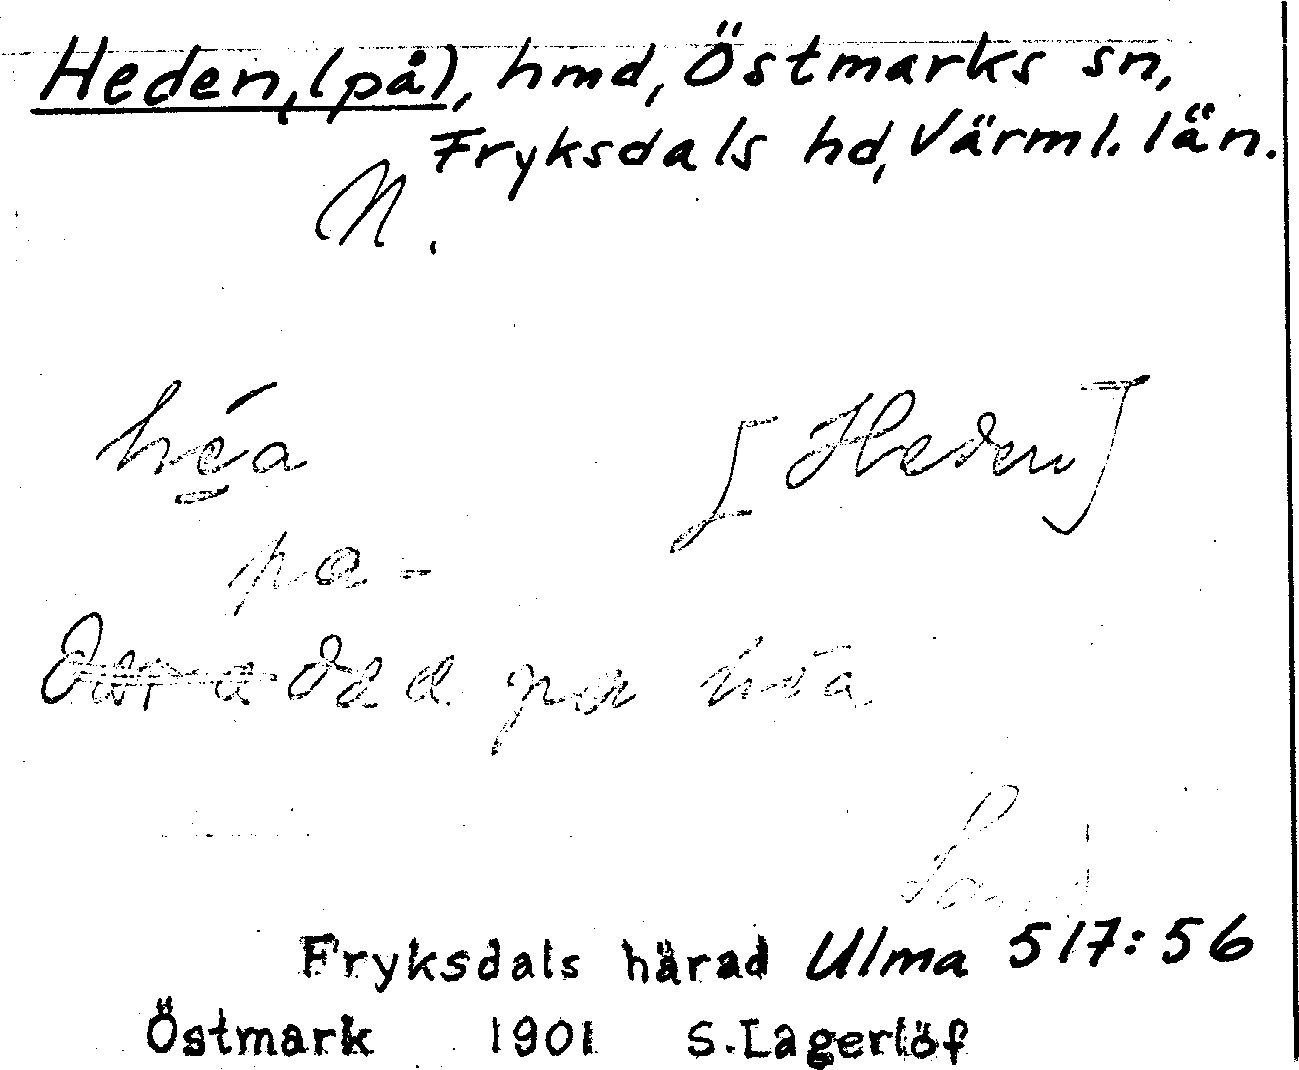 Heden, (på), hmd, Östmarks sn,
Fryksdals hd, Värml. län.
N.
héa [Heden]
pa -
pa hea
Fryksdals härad Ulma 517:56
Östmark 1901 S. Lagerlöf